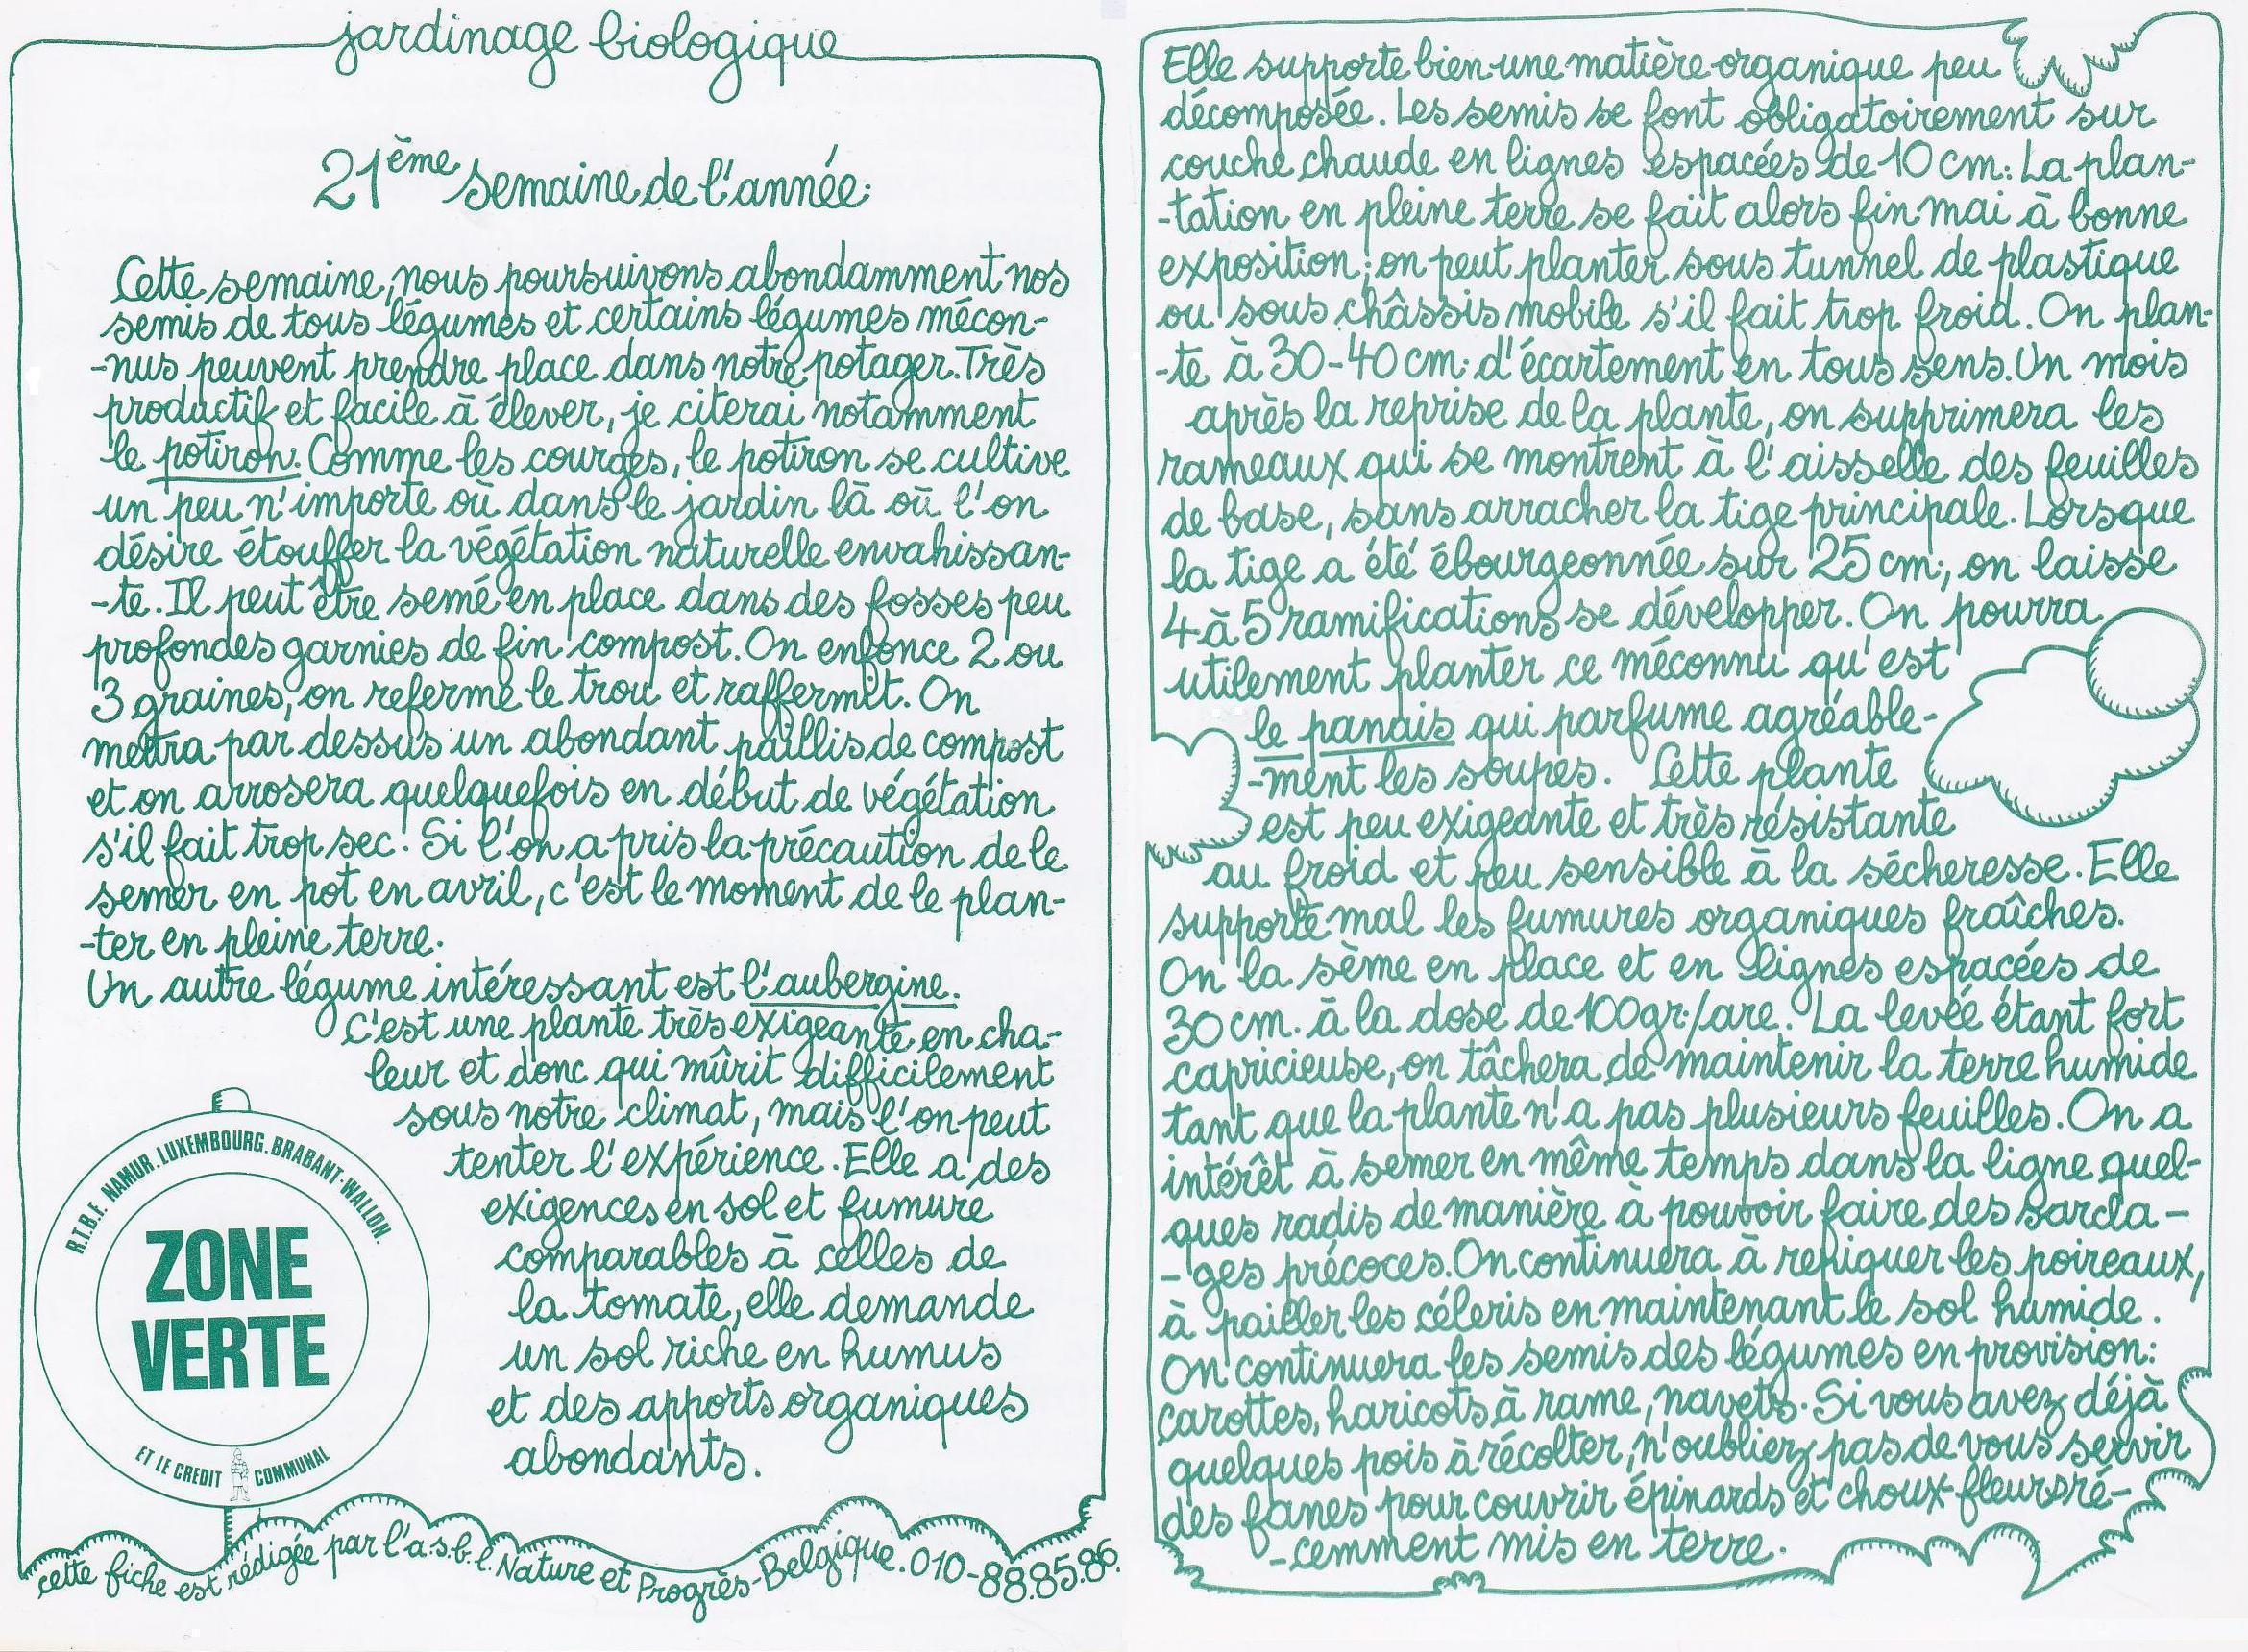 jardinage biologique
21ème semaine de l'année:
Cette semaine, nous poursuivons abondamment nos
semis de tous légumes et certains légumes mécon-
-nus peuvent prendre place dans notre potager. Très
productif et facile à élever, je citerai notamment
le potiron. Comme les courges, le potiron se cultive
un peu n'importe où dans le jardin là où l'on
désire étouffer la végétation naturelle envahissan-
-te. Il peut être semé en place dans des fosses peu
profondes garnies de fin compost. On enfonce 2 ou
3 graines, on referme le trou et raffermit. On
mettra par dessus un abondant paillis de compost
et on arrosera quelquefois en début de végétation
s'il fait trop sec. Si l'on a pris la précaution de le
semer en pot en avril, c'est le moment de le plan-
-ter en pleine terre.
Un autre légume intéressant est l'aubergine.
C'est une plante très exigeante en cha-
leur et donc qui mûrit difficilement
sous notre climat, mais l'on peut
tenter l'expérience. Elle a des
exigences en sol et fumure
comparables à celles de
la tomate, elle demande
un sol riche en humus
et des apports organiques
abondants.
R.T.B.F. NAMUR. LUXEMBOURG. BRABANT-WALLON.
ZONE
VERTE
ET LE CREDIT COMMUNAL
cette fiche est rédigée par l'a.s.b.l. Nature et Progrès-Belgique. 010-88.85.86.
Elle supporte bien une matière organique peu
décomposée. Les semis se font obligatoirement sur
couche chaude en lignes espacées de 10 cm. La plan-
-tation en pleine terre se fait alors fin mai à bonne
exposition; on peut planter sous tunnel de plastique
ou sous châssis mobile s'il fait trop froid. On plan-
-te à 30-40 cm. d'écartement en tous sens. Un mois
après la reprise de la plante, on supprimera les
rameaux qui se montrent à l'aisselle des feuilles
de base, sans arracher la tige principale. Lorsque
la tige a été ébourgeonnée sur 25 cm., on laisse
4 à 5 ramifications se développer. On pourra
utilement planter ce méconnu qu'est
le panais qui parfume agréable-
-ment les soupes. Cette plante
est peu exigeante et très résistante
au froid et peu sensible à la sécheresse. Elle
supporte mal les fumures organiques fraîches.
On la sème en place et en lignes espacées de
30 cm. à la dose de 100gr./are. La levée étant fort
capricieuse, on tâchera de maintenir la terre humide
tant que la plante n'a pas plusieurs feuilles. On a
intérêt à semer en même temps dans la ligne quel-
ques radis de manière à pouvoir faire des sarcla-
-ges précoces. On continuera à repiquer les poireaux,
à pailler les céleris en maintenant le sol humide.
On continuera les semis des légumes en provision:
carottes, haricots à rame, navets. Si vous avez déjà
quelques pois à récolter, n'oubliez pas de vous servir
des fanes pour couvrir épinards et choux-fleurs ré-
-cemment mis en terre.